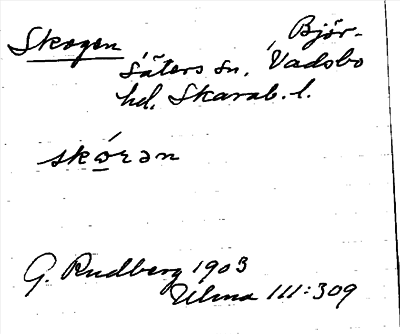 Skogen, Björ-
säters sn, Vadsbo
hd. Skarab. l.
skó̱rən
G. Rudberg 1903
Ulma 111:309